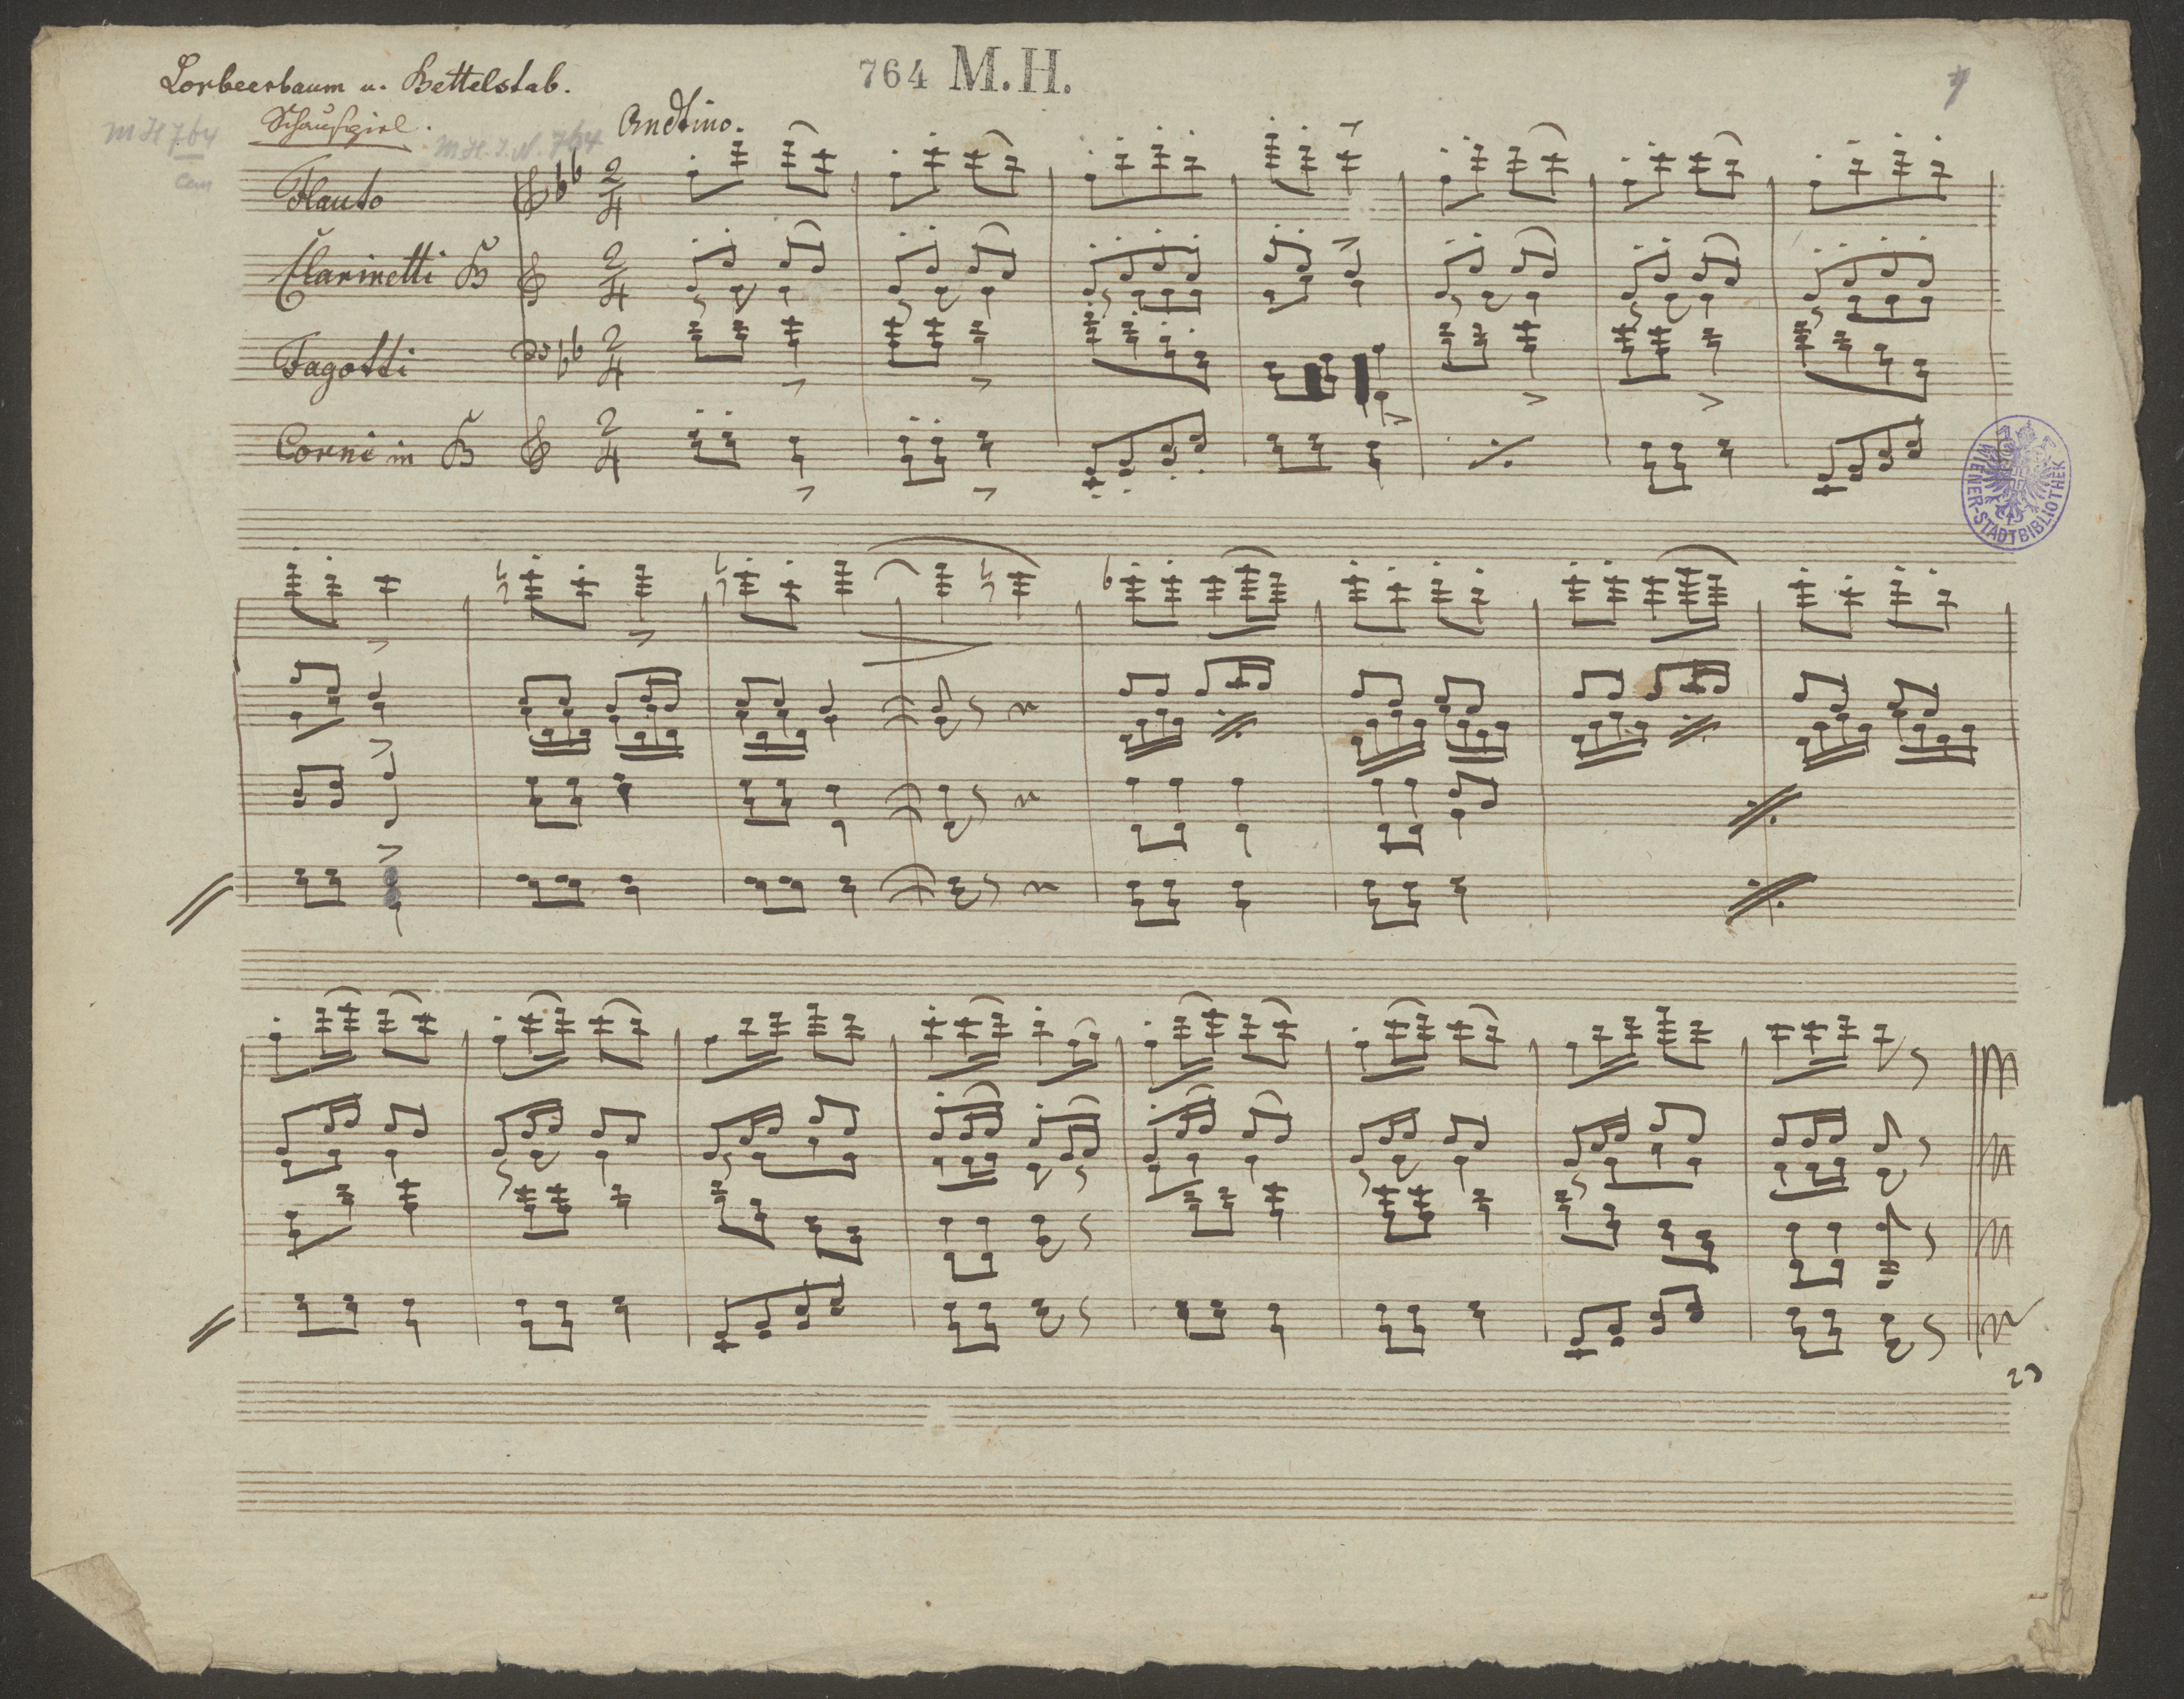 Lorbeerbaum u. Bettelstab.
764 M.H.
Schauspiel.
M H 764
M.H.I.N. 764
Andtino.
Flauto
2/4
Clarinetti B
2/4
Fagotti
2/4
Corni in B
2/4
WIENER-STADTBIBLIOTHEK
23